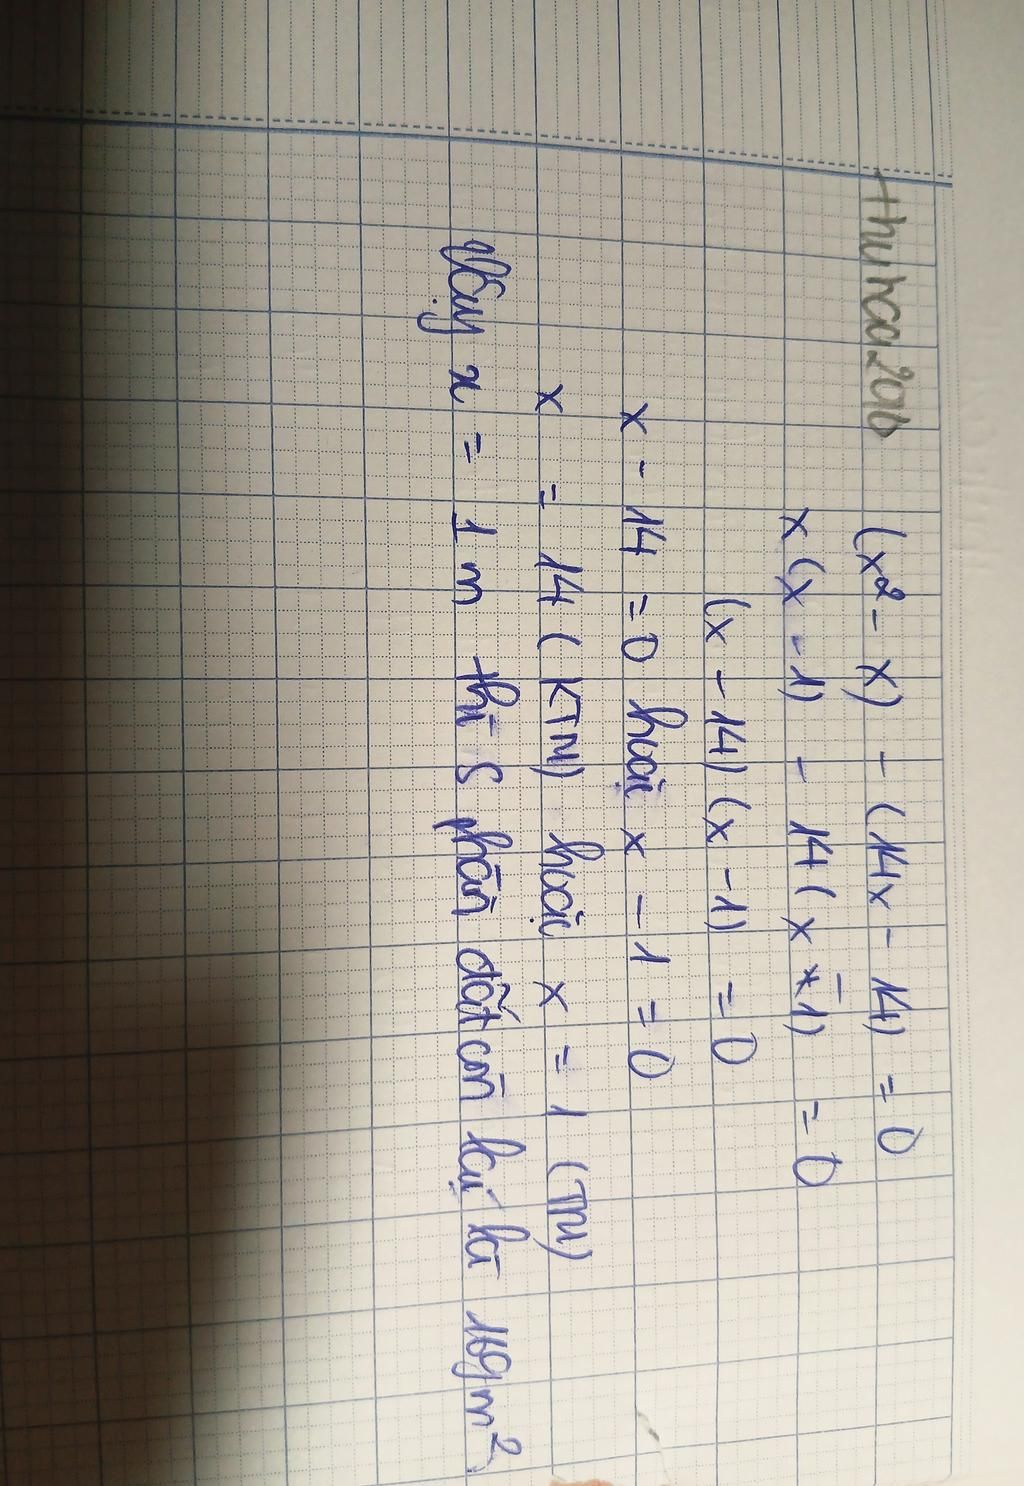 thuhoa2016
(x² - x) - (14x - 14) = 0
x(x - 1) - 14(x - 1) = 0
(x - 14)(x - 1) = 0
x - 14 = 0 hoặc x - 1 = 0
x = 14 (KTM) hoặc x = 1 (TM)
Vậy x = 1m thì S phần đất còn lại là 169m²